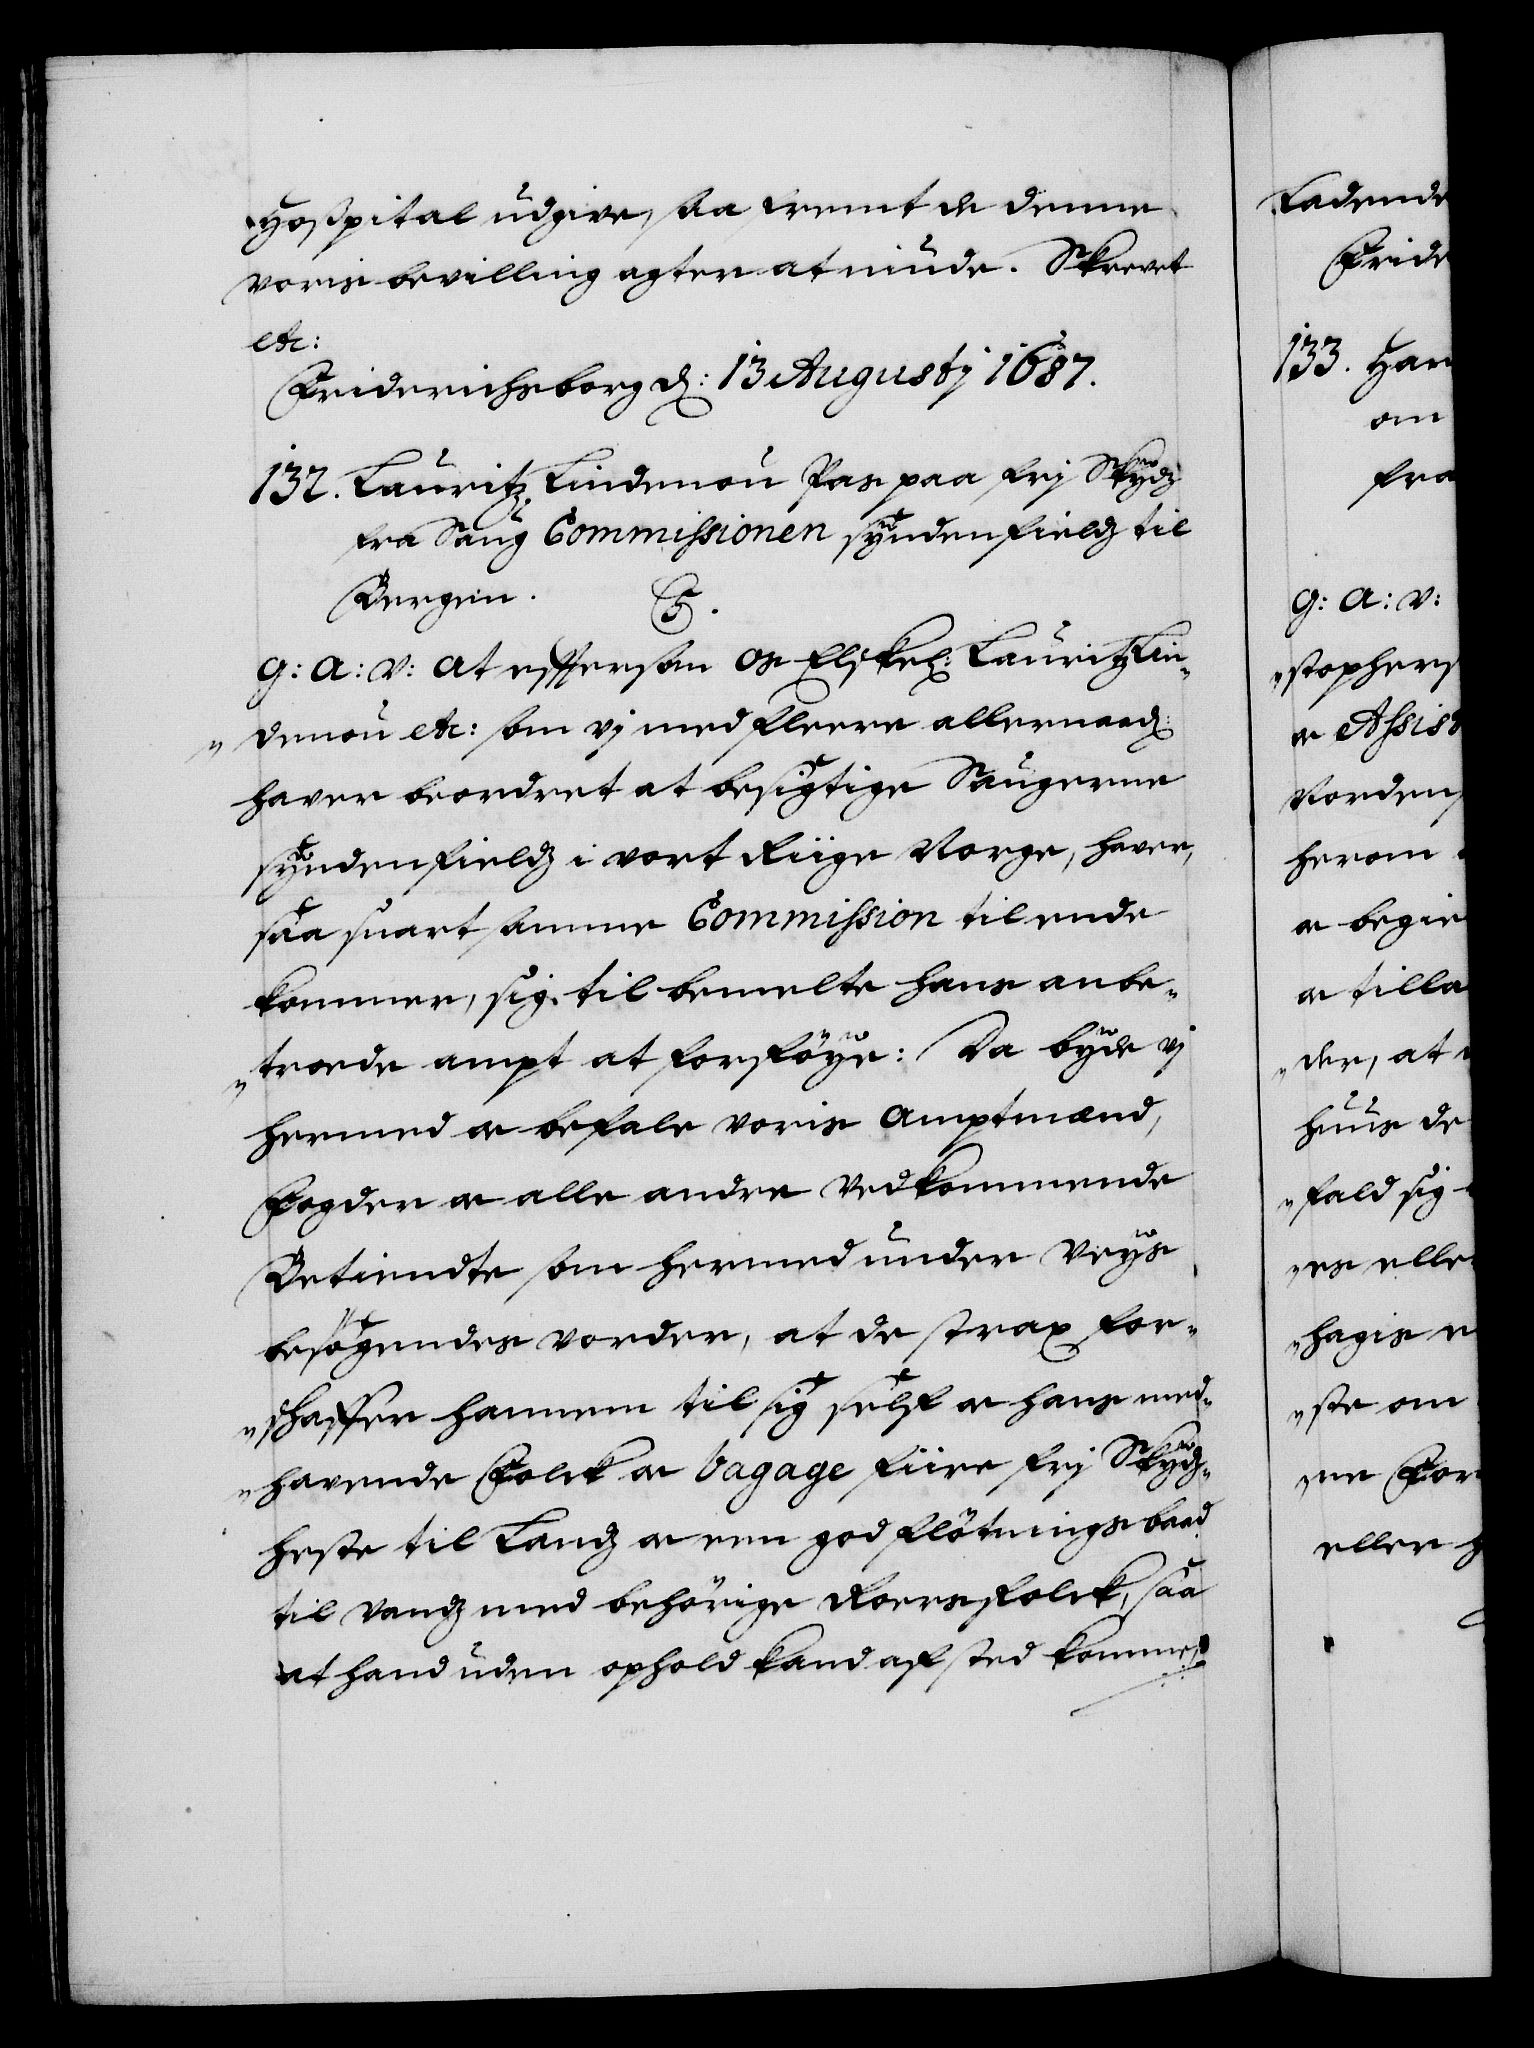 Hospital udgive, saa fremt de denne
voris bevilling agter at niude. Skrevet
etc:
Friderichsborg d: 13 Augustj 1687.
132. Lauritz Lindenou Pas paa frj Skydz
fra Saug Commissionen syndenfieldz til
Bergen. C5.
G: A: V: At eftersom Os Elskel: Lauritz Lin-
denou etc: som vj med fleere allernaad:
haver beordret at besigtige Saugerne
syndenfieldz i vort Riige Norge, haver,
saa snart samme Commission til ende
kommer, sig til bemelte hans anbe-
troede ampt at forföye: Da byde vj
hermed oc befale voris Amptmænd,
Fogder oc alle andre Vedkommende
Betiendte som hermed under Veys
besögendes vorder, at de strax for-
schaffer hannem til sig self oc hans med-
havende Folck oc bagage fiire frj Skydz-
heste til Landz oc een god flötnings baad
til Vandz med behörige Roersfolck, saa
at hand uden ophold kand af sted komme,
Ladende
Fride
133. Han
om
fra
G: A: V:
stophers
oc Assis
Norden
herom
oc begie
oc tilla
der, at
huus de
fald sig
es elle
hagis
ste om
ne For
eller